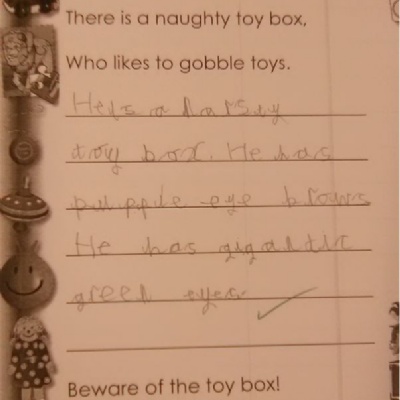 There is a naughty toy box,
Who likes to gobble toys.
He is a
toy box. He has
pupple eye brows
He has gigaltic
greel eyes.
Beware of the toy box!